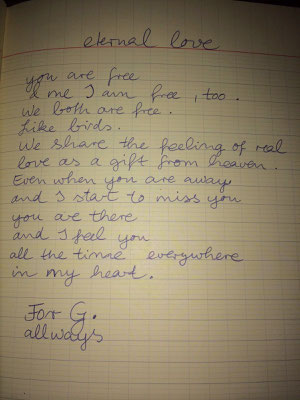 eternal love
you are free
& me I am free, too.
We both are free.
Like birds.
We share the feeling of real
love as a gift from heaven.
Even when you are away
and I start to miss you
you are there
and I feel you
all the time everywhere
in my heart.
For G.
allways